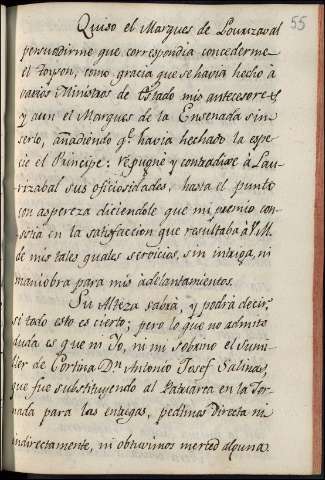 55
Quiso el Marques de Lourizaval
persuadirme que correspondia concederme
el Toyson, como gracia que se havia hecho à
varios Ministros de Estado mis antecesores,
y aun el Marques de la Ensenada sin
serlo, añadiendo q.e havia hechado la espe
cie el Principe: repugnè y contradixe à Lau
rizabal sus oficiosidades, hasta el punto
con aspereza diciendole que mi premio con
sistia en la satisfaccion que resultaba à V.M.
de mis tales quales servicios, sin intriga, ni
maniobra para mis adelantamientos.
Su Alteza sabrà, y podrà decir,
si todo esto es cierto; pero lo que no admite
duda es que ni Yo, ni mi sobrino el Sumi
ller de Cortina D.n Antonio Josef Salinas,
que fue substituyendo al Patriarca en la Jor
nada para las entregas, pedimos directa ni
indirectamente, ni obtuvimos merced alguna.